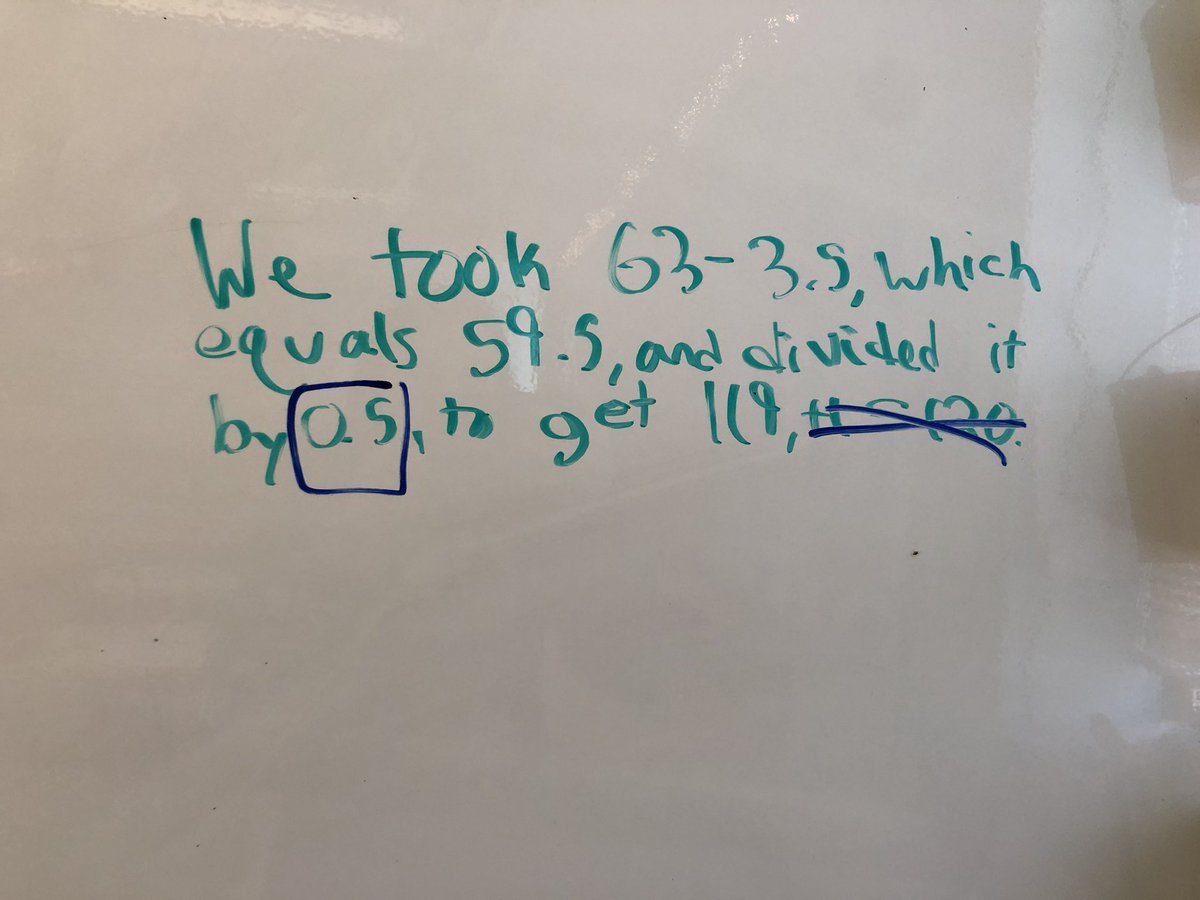 We took 63-3.5, which
equals 59.5, and divided it
by 0.5, to get 119,